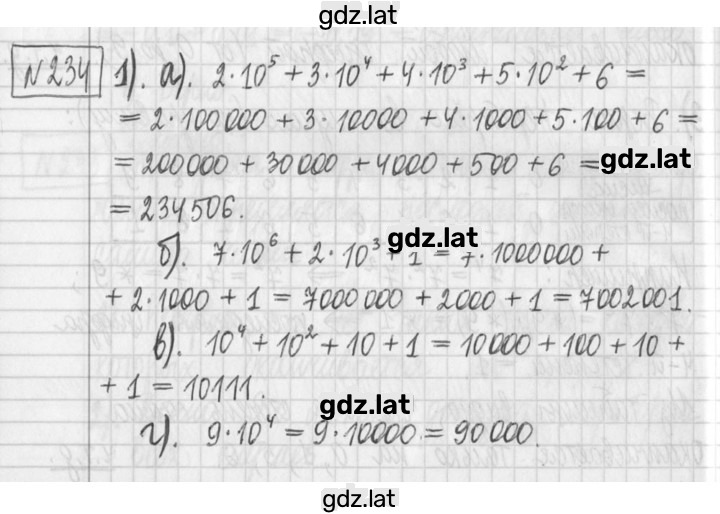 gdz.lat
№234 1). а). 2·10⁵ + 3·10⁴ + 4·10³ + 5·10² + 6 =
= 2·100 000 + 3·10000 + 4·1000 + 5·100 + 6 =
= 200000 + 30000 + 4000 + 500 + 6 = gdz.lat
= 234 506.
б). 7·10⁶ + 2·10³ + 1 = 7·1000 000 + gdz.lat
+ 2·1000 + 1 = 7000 000 + 2000 + 1 = 7002001.
в). 10⁴ + 10² + 10 + 1 = 10000 + 100 + 10 +
+ 1 = 10111.
gdz.lat
г). 9·10⁴ = 9·10000 = 90 000.
gdz.lat